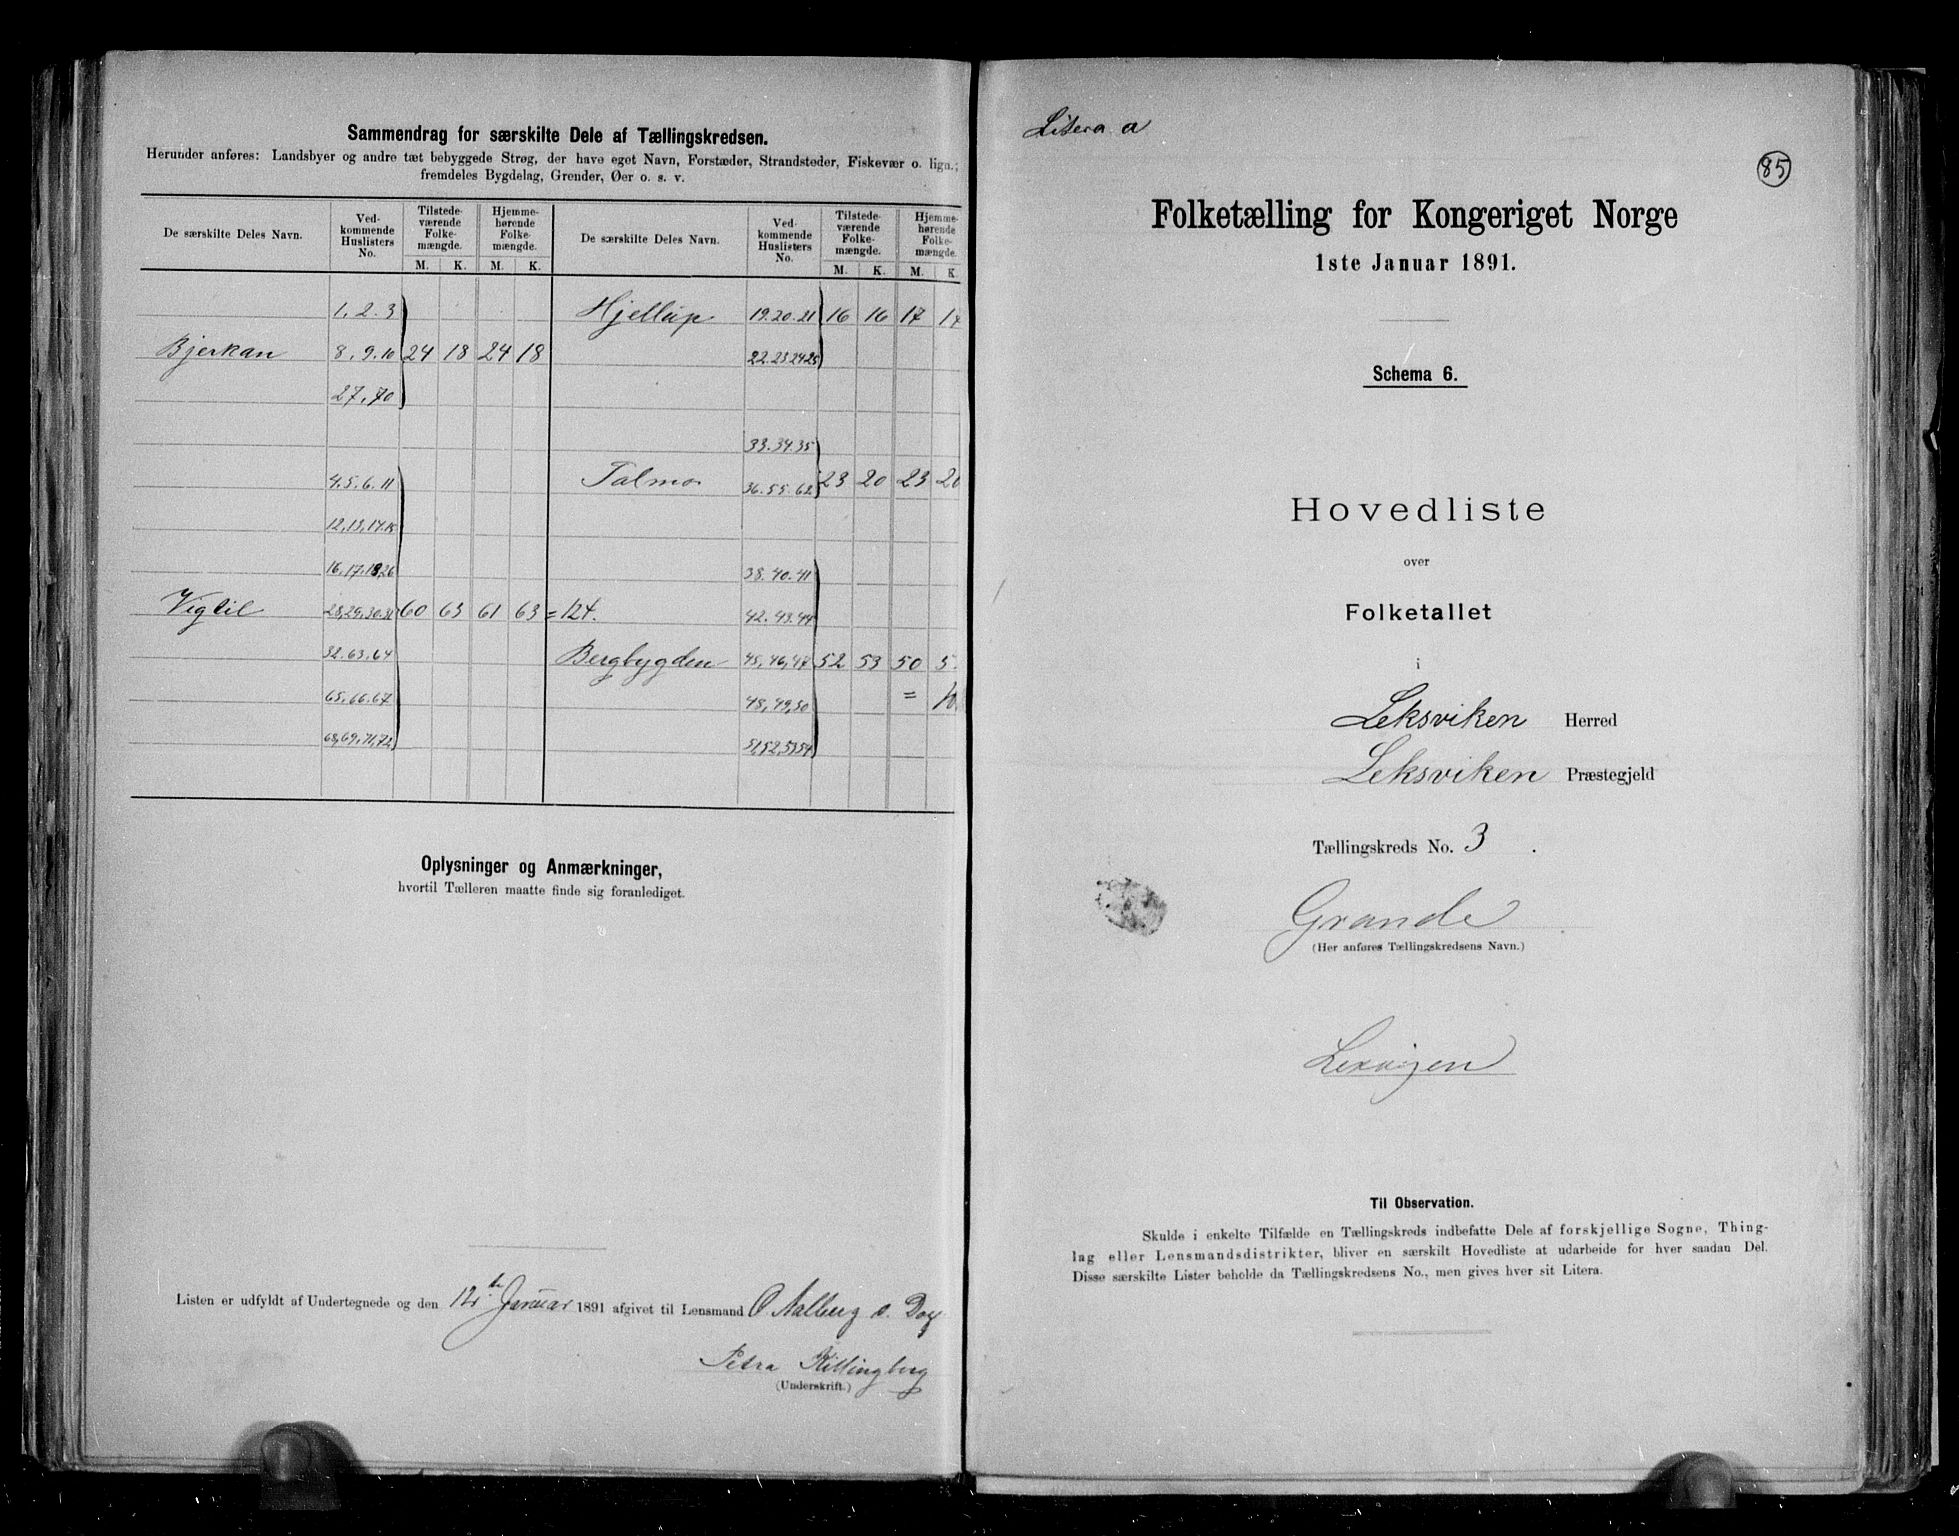 Sammendrag for særskilte Dele af Tællingskredsen.
Herunder anføres: Landsbyer og andre tæt bebyggede Strøg, der have eget Navn, Forstæder, Strandsteder, Fiskevær o. lign.;
fremdeles Bygdelag, Grender, Øer o. s. v.
De særskilte Deles Navn. Ved-kommende Huslisters No. Tilstede-værende Folke-mængde. Hjemme-hørende Folke-mængde. De særskilte Deles Navn. Ved-kommende Huslisters No. Tilstede-værende Folke-mængde. Hjemme-hørende Folke-mængde.
M. K. M. K. M. K. M. K.
1. 2. 3 Hjellup 19.20.21 16 16 17 17
Bjerkan 8. 9. 10 24 18 24 18 22.23.24.25
27. 70
33.34.35
4.5.6.11 Talmo 36.55.62 23 20 23 20
12.13.14.15
16.17.18.26 38.40.41
Vigtil 28.29.30.31 60 63 61 63 = 124. 42.43.44
32.63.64 Bergbygden 45,46,47 52 53 50 5
65.66.67 48,49,50 =
68,69,71,72 51,52,53,54
Oplysninger og Anmærkninger,
hvortil Tælleren maatte finde sig foranlediget.
Listen er udfyldt af Undertegnede og den 12te Januar 1891 afgivet til Lensmand O. Aalberg s. Dag
Petra Killingberg
(Underskrift.)
Litera a
85
Folketælling for Kongeriget Norge
1ste Januar 1891.
Schema 6.
Hovedliste
over
Folketallet
i
Leksviken Herred
Leksviken Præstegjeld
Tællingskreds No. 3.
Grande
(Her anføres Tællingskredsens Navn.)
Lexvigen
Til Observation.
Skulde i enkelte Tilfælde en Tællingskreds indbefatte Dele af forskjellige Sogne, Thing-
lag eller Lensmandsdistrikter, bliver en særskilt Hovedliste at udarbeide for hver saadan Del.
Disse særskilte Lister beholde da Tællingskredsens No., men gives hver sit Litera.